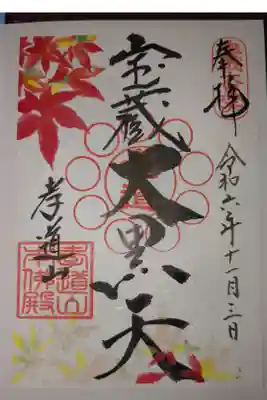 奉拝
令和六年十一月三日
宝蔵大黒天
孝道山
孝道山
本佛殿